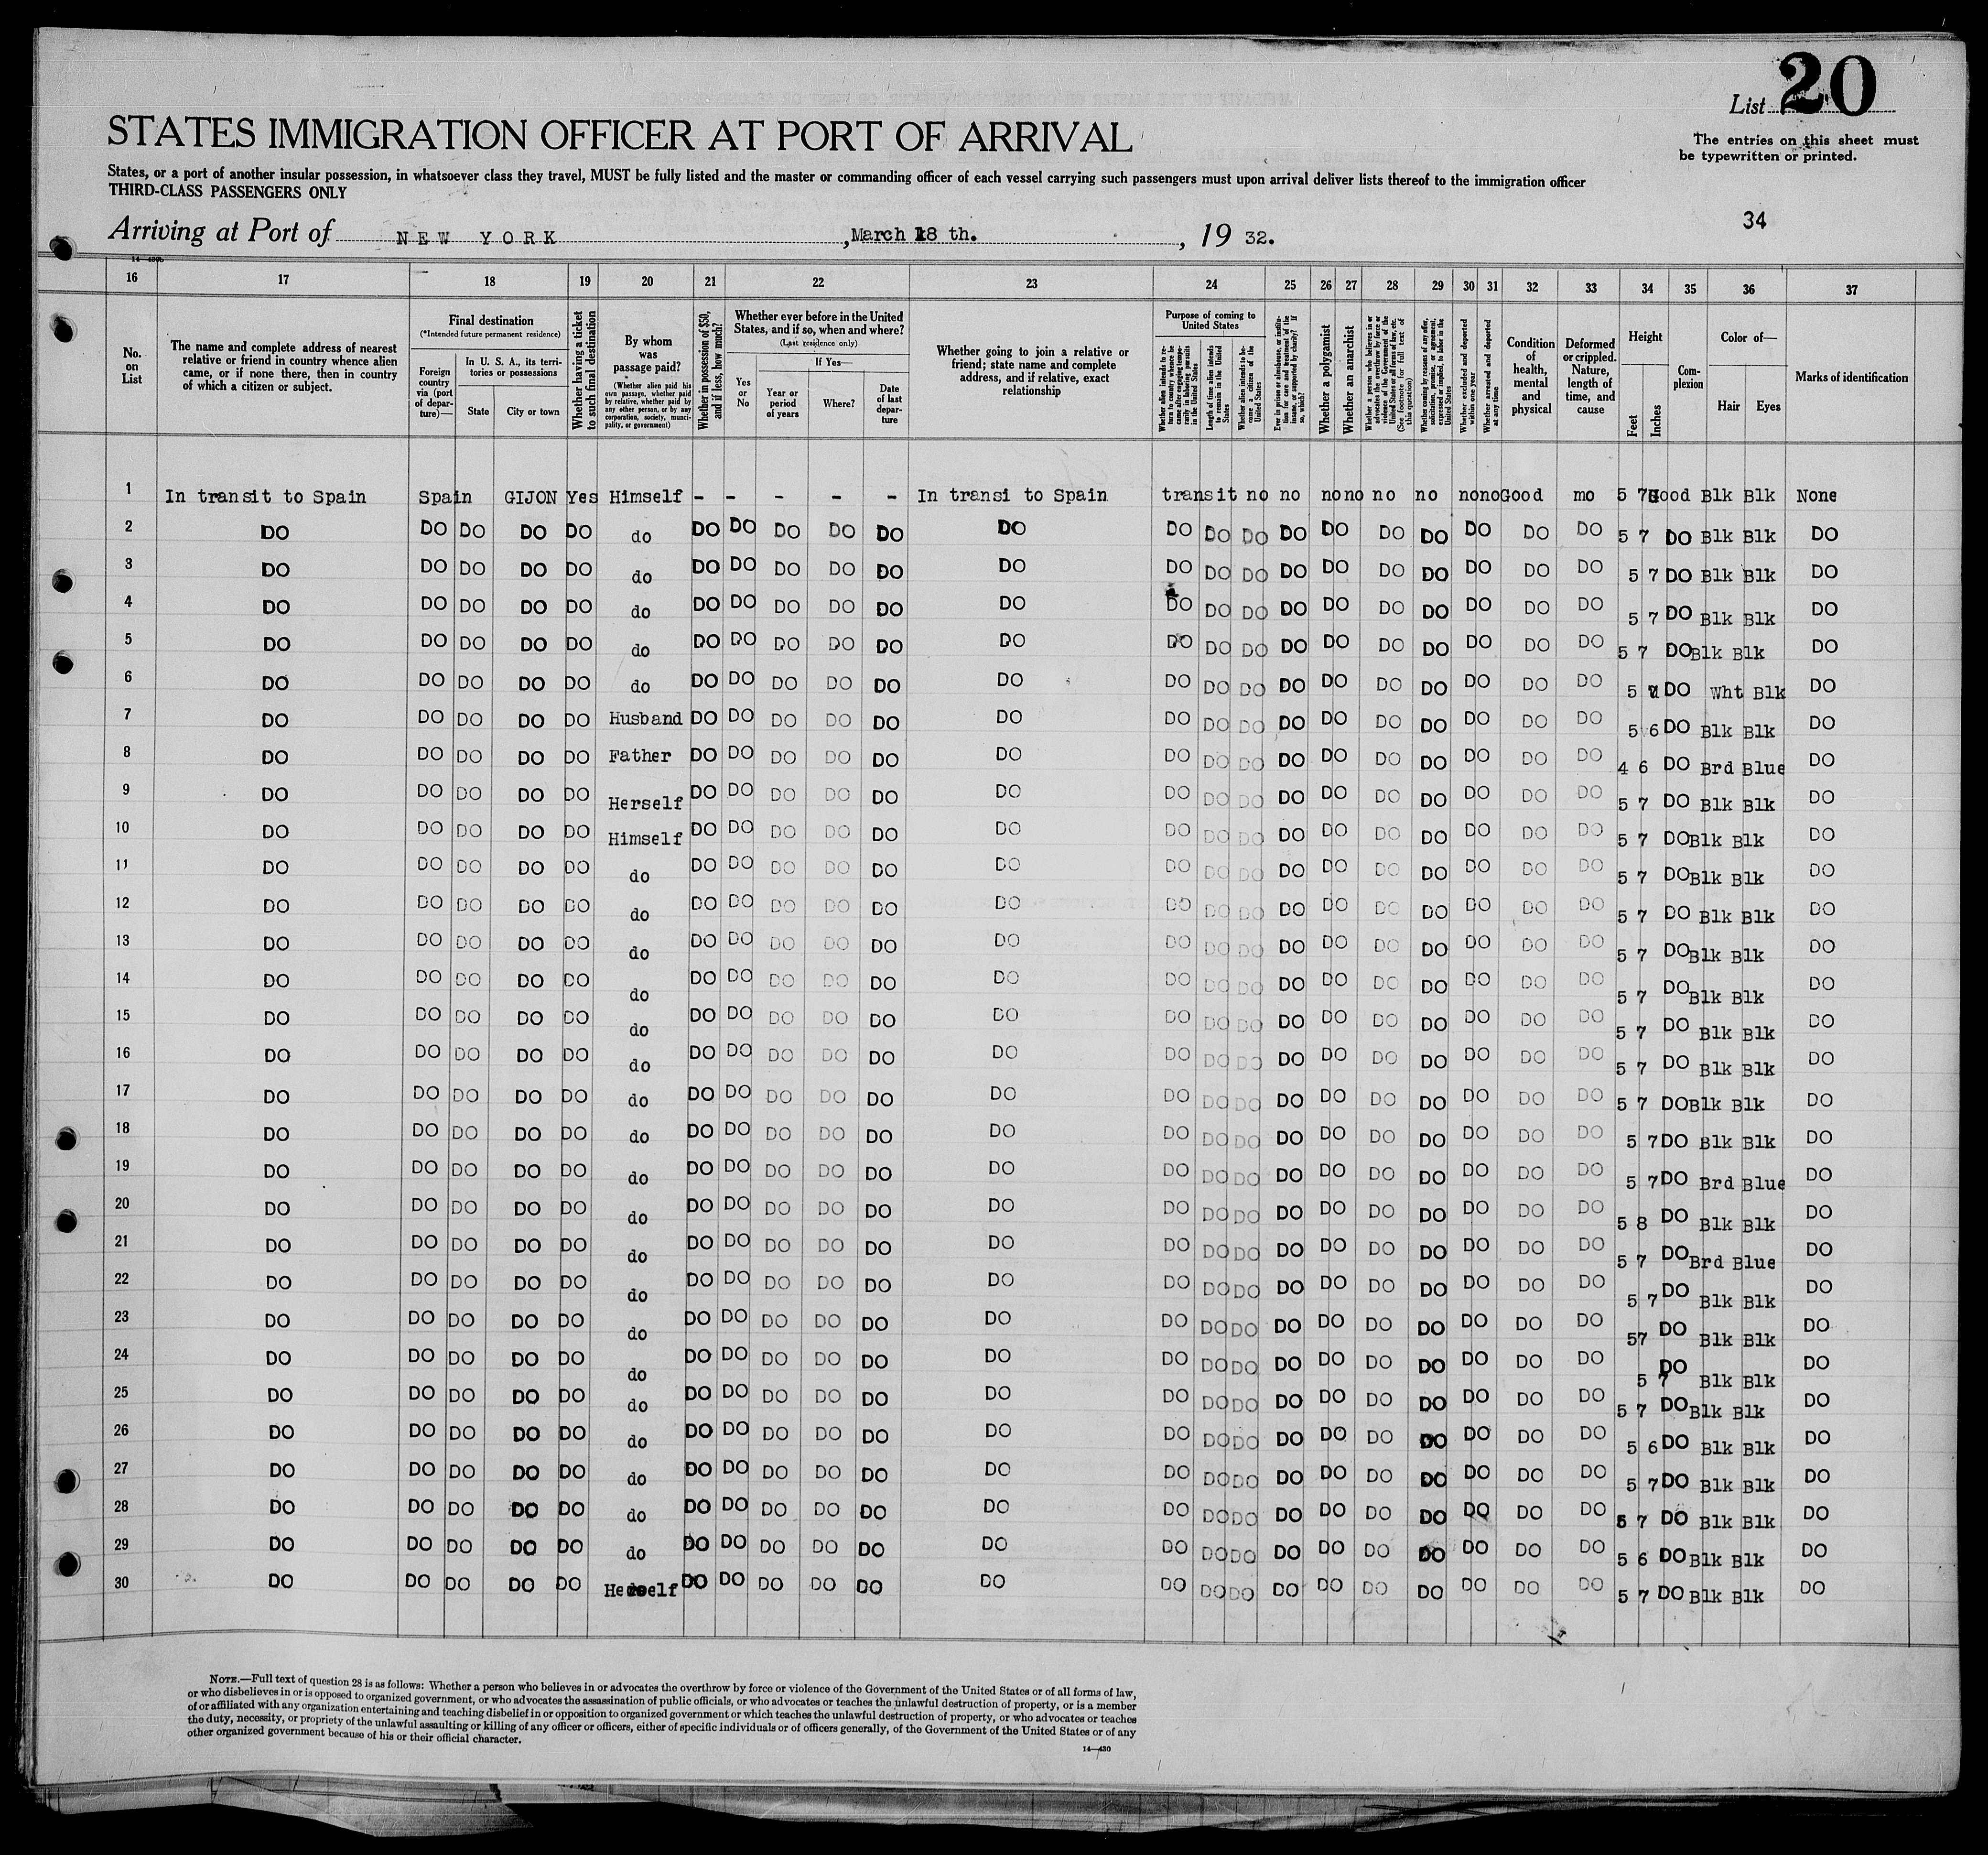 List 20
The entries on this sheet must
be typewritten or printed.
STATES IMMIGRATION OFFICER AT PORT OF ARRIVAL
States, or a port of another insular possession, in whatsoever class they travel, MUST be fully listed and the master or commanding officer of each vessel carrying such passengers must upon arrival deliver lists thereof to the immigration officer
THIRD-CLASS PASSENGERS ONLY
34
Arriving at Port of NEW YORK, March 18 th., 19 32.
16 17 18 19 20 21 22 23 24 25 26 27 28 29 30 31 32 33 34 35 36 37
No. on List
The name and complete address of nearest relative or friend in country whence alien came, or if none there, then in country of which a citizen or subject.
Final destination
(*Intended future permanent residence)
Foreign country via (port of departure)—
In U. S. A., its territories or possessions
State
City or town
Whether having a ticket to such final destination
By whom was passage paid?
(Whether alien paid his own passage, whether paid by relative, whether paid by any other person, or by any corporation, society, municipality, or government)
Whether in possession of $50, and if less, how much?
Whether ever before in the United States, and if so, when and where?
(Last residence only)
Yes or No
If Yes—
Year or period of years
Where?
Date of last departure
Whether going to join a relative or friend; state name and complete address, and if relative, exact relationship
Purpose of coming to United States
Whether alien intends to return to country whence he came after engaging temporarily in laboring pursuits in the United States
Length of time alien intends to remain in the United States
Whether alien intends to become a citizen of the United States
Ever in prison or almshouse, or institution for care and treatment of the insane, or supported by charity? If so, which?
Whether a polygamist
Whether an anarchist
Whether a person who believes in or advocates the overthrow by force or violence of the Government of the United States or all forms of law, etc. (See footnote for full text of this question)
Whether coming by reason of any offer, solicitation, promise, or agreement, expressed or implied, to labor in the United States
Whether excluded and deported within one year
Whether arrested and deported at any time
Condition of health, mental and physical
Deformed or crippled. Nature, length of time, and cause
Height
Feet
Inches
Complexion
Color of—
Hair
Eyes
Marks of identification
1 In transit to Spain Spain GIJON Yes Himself - - - - - In transi to Spain transit no no no no no no no no Good mo 5 7 Good Blk Blk None
2 DO DO DO DO DO do DO DO DO DO DO DO DO DO DO DO DO DO DO DO DO DO 5 7 DO Blk Blk DO
3 DO DO DO DO DO do DO DO DO DO DO DO DO DO DO DO DO DO DO DO DO DO 5 7 DO Blk Blk DO
4 DO DO DO DO DO do DO DO DO DO DO DO DO DO DO DO DO DO DO DO DO DO 5 7 DO Blk Blk DO
5 DO DO DO DO DO do DO DO DO DO DO DO DO DO DO DO DO DO DO DO DO DO 5 7 DO Blk Blk DO
6 DO DO DO DO DO do DO DO DO DO DO DO DO DO DO DO DO DO DO DO DO DO 5 DO Wht Blk DO
7 DO DO DO DO DO Husband DO DO DO DO DO DO DO DO DO DO DO DO DO DO DO DO 5 6 DO Blk Blk DO
8 DO DO DO DO DO Father DO DO DO DO DO DO DO DO DO DO DO DO DO DO DO DO 4 6 DO Brd Blue DO
9 DO DO DO DO DO Herself DO DO DO DO DO DO DO DO DO DO DO DO DO DO DO DO 5 7 DO Blk Blk DO
10 DO DO DO DO DO Himself DO DO DO DO DO DO DO DO DO DO DO DO DO DO DO DO 5 7 DO Blk Blk DO
11 DO DO DO DO DO do DO DO DO DO DO DO DO DO DO DO DO DO DO DO DO DO 5 7 DO Blk Blk DO
12 DO DO DO DO DO do DO DO DO DO DO DO DO DO DO DO DO DO DO DO DO DO 5 7 DO Blk Blk DO
13 DO DO DO DO DO do DO DO DO DO DO DO DO DO DO DO DO DO DO DO DO DO 5 7 DO Blk Blk DO
14 DO DO DO DO DO do DO DO DO DO DO DO DO DO DO DO DO DO DO DO DO DO 5 7 DO Blk Blk DO
15 DO DO DO DO DO do DO DO DO DO DO DO DO DO DO DO DO DO DO DO DO DO 5 7 DO Blk Blk DO
16 DO DO DO DO DO do DO DO DO DO DO DO DO DO DO DO DO DO DO DO DO DO 5 7 DO Blk Blk DO
17 DO DO DO DO DO do DO DO DO DO DO DO DO DO DO DO DO DO DO DO DO DO 5 7 DO Blk Blk DO
18 DO DO DO DO DO do DO DO DO DO DO DO DO DO DO DO DO DO DO DO DO DO 5 7 DO Blk Blk DO
19 DO DO DO DO DO do DO DO DO DO DO DO DO DO DO DO DO DO DO DO DO DO 5 7 DO Brd Blue DO
20 DO DO DO DO DO do DO DO DO DO DO DO DO DO DO DO DO DO DO DO DO DO 5 8 DO Blk Blk DO
21 DO DO DO DO DO do DO DO DO DO DO DO DO DO DO DO DO DO DO DO DO DO 5 7 DO Brd Blue DO
22 DO DO DO DO DO do DO DO DO DO DO DO DO DO DO DO DO DO DO DO DO DO 5 7 DO Blk Blk DO
23 DO DO DO DO DO do DO DO DO DO DO DO DO DO DO DO DO DO DO DO DO DO 57 DO Blk Blk DO
24 DO DO DO DO DO do DO DO DO DO DO DO DO DO DO DO DO DO DO DO DO DO 5 7 DO Blk Blk DO
25 DO DO DO DO DO do DO DO DO DO DO DO DO DO DO DO DO DO DO DO DO DO 5 7 DO Blk Blk DO
26 DO DO DO DO DO do DO DO DO DO DO DO DO DO DO DO DO DO DO DO DO DO 5 6 DO Blk Blk DO
27 DO DO DO DO DO do DO DO DO DO DO DO DO DO DO DO DO DO DO DO DO DO 5 7 DO Blk Blk DO
28 DO DO DO DO DO do DO DO DO DO DO DO DO DO DO DO DO DO DO DO DO DO 5 7 DO Blk Blk DO
29 DO DO DO DO DO do DO DO DO DO DO DO DO DO DO DO DO DO DO DO DO DO 5 6 DO Blk Blk DO
30 DO DO DO DO DO Herself DO DO DO DO DO DO DO DO DO DO DO DO DO DO DO DO 5 7 DO Blk Blk DO
NOTE.—Full text of question 28 is as follows: Whether a person who believes in or advocates the overthrow by force or violence of the Government of the United States or of all forms of law,
or who disbelieves in or is opposed to organized government, or who advocates the assassination of public officials, or who advocates or teaches the unlawful destruction of property, or is a member
of or affiliated with any organization entertaining and teaching disbelief in or opposition to organized government or which teaches the unlawful destruction of property, or who advocates or teaches
the duty, necessity, or propriety of the unlawful assaulting or killing of any officer or officers, either of specific individuals or of officers generally, of the Government of the United States or of any
other organized government because of his or their official character.
14—430